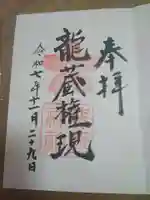 奉拝
龍蔵権現
令和七年十一月二十九日